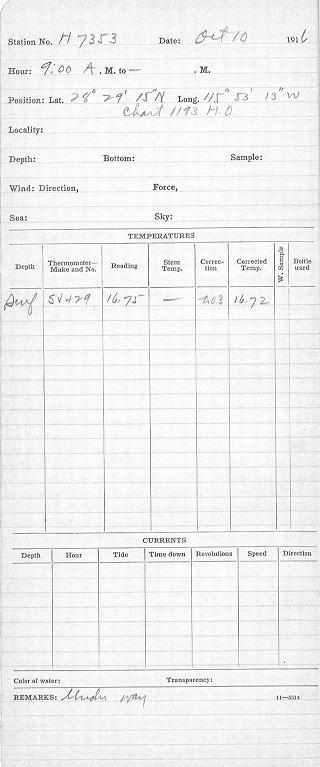 Station No. H 7353 Date: Oct 10 1916
Hour: 9:00 A. M. to — . M.
Position: Lat. 28° 29' 15"N Long. 115° 53' 13"W
Chart 1193 H.O
Locality:
Depth: Bottom: Sample:
Wind: Direction, Force,
Sea: Sky:
TEMPERATURES
Depth Thermometer— Make and No. Reading Stem Temp. Correc- tion Corrected Temp. W. Sample Bottle used
Surf 16.75 — -0.03 16.72
CURRENTS
Depth Hour Tide Time down Revolutions Speed Direction
Color of water: Transparency:
REMARKS: Under way 11—5314